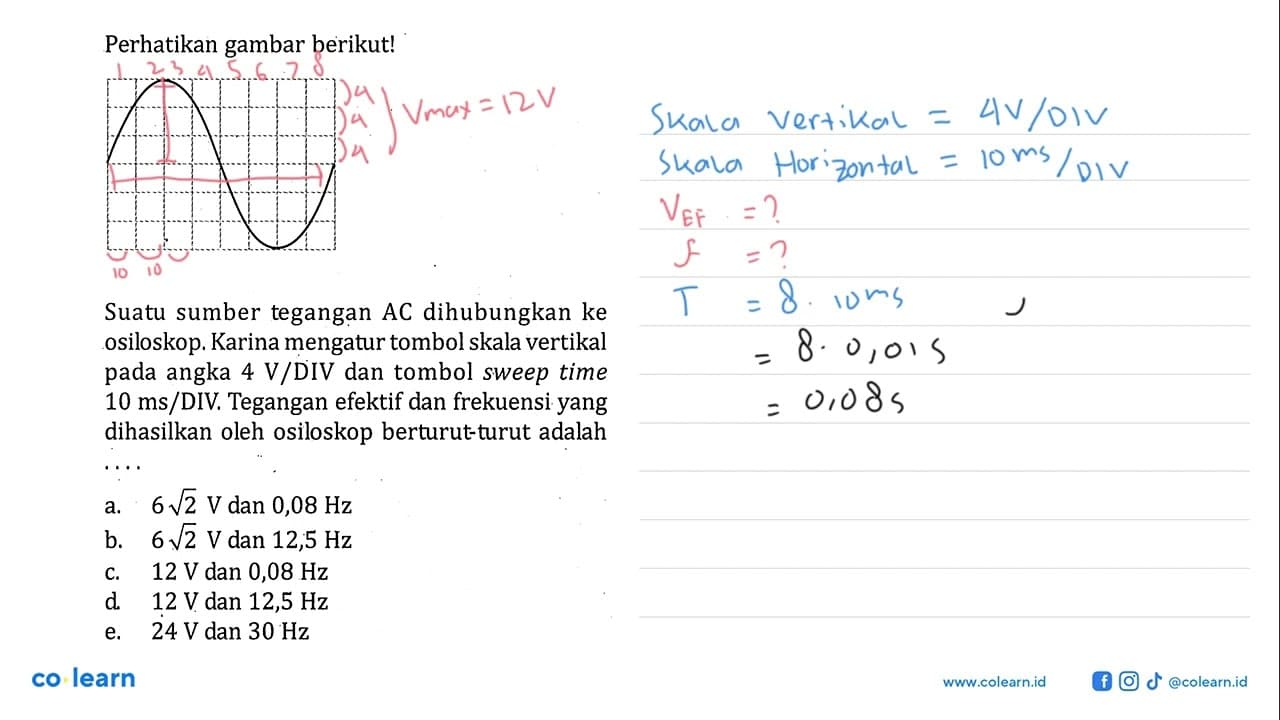 Perhatikan gambar berikut!
1 2 3 4 5 6 7 8
4
4
4
Vmax = 12 V
10 10
Suatu sumber tegangan AC dihubungkan ke
osiloskop. Karina mengatur tombol skala vertikal
pada angka 4 V/DIV dan tombol sweep time
10 ms/DIV. Tegangan efektif dan frekuensi yang
dihasilkan oleh osiloskop berturut-turut adalah
....
a. 6√2 V dan 0,08 Hz
b. 6√2 V dan 12,5 Hz
c. 12 V dan 0,08 Hz
d. 12 V dan 12,5 Hz
e. 24 V dan 30 Hz
Skala Vertikal = 4V/DIV
Skala Horizontal = 10 ms/DIV
VEF = ?
f = ?
T = 8. 10 ms
= 8. 0,01 s
= 0,08 s
co learn
www.colearn.id
@colearn.id